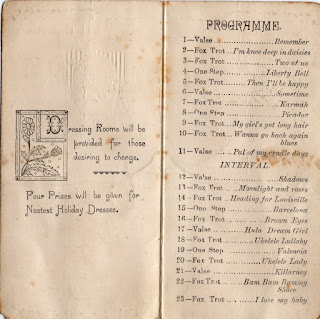 Dressing Rooms will be
provided for those
desiring to change.
Four Prizes will be given for
Neatest Holiday Dresses.
PROGRAMME.
1—Valse ............... Remember
2—Fox Trot .. I'm knee deep in daisies
3—Fox Trot ............ Two of us
4—One Step ......... Liberty Bell
5—Fox Trot ...... Then I'll be happy
6—Valse ............... Sometime
7—Fox Trot ............ Karmah
8—One Step ............ Picador
9—Fox Trot .. My girl's got long hair
10—Fox Trot .. Wanna go back again
blues
11—Valse ..... Pal of my cradle days
INTERVAL
12—Valse ............... Shadows
13—Fox Trot ... Moonlight and roses
14—Fox Trot .. Heading for Louisville
15—One Step ............ Barcelona
16—Fox Trot ......... Brown Eyes
17—Valse ......... Hula Dream Girl
18—Fox Trot ...... Ukelele Lullaby
19—One Step ............ Valencia
20—Fox Trot ......... Ukelele Lady
21—Valse ............... Killarney
22—Fox Trot ...... Bam Bam Bammy
Shore
23—Fox Trot ...... I love my baby